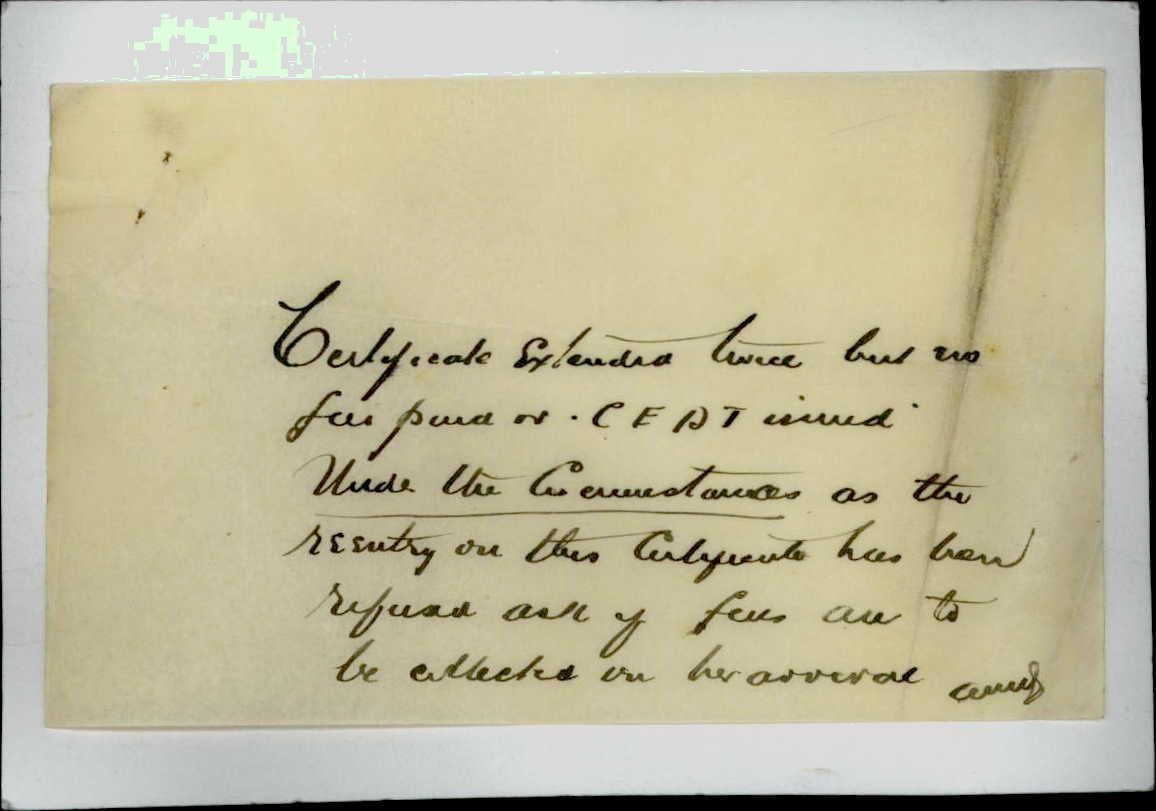 Certificate Extended twice but no
fees paid or . C E D T issued
Under the Circumstances as the
reentry on this Certificate has been
refused ask if fees are to
be collected on her arrival